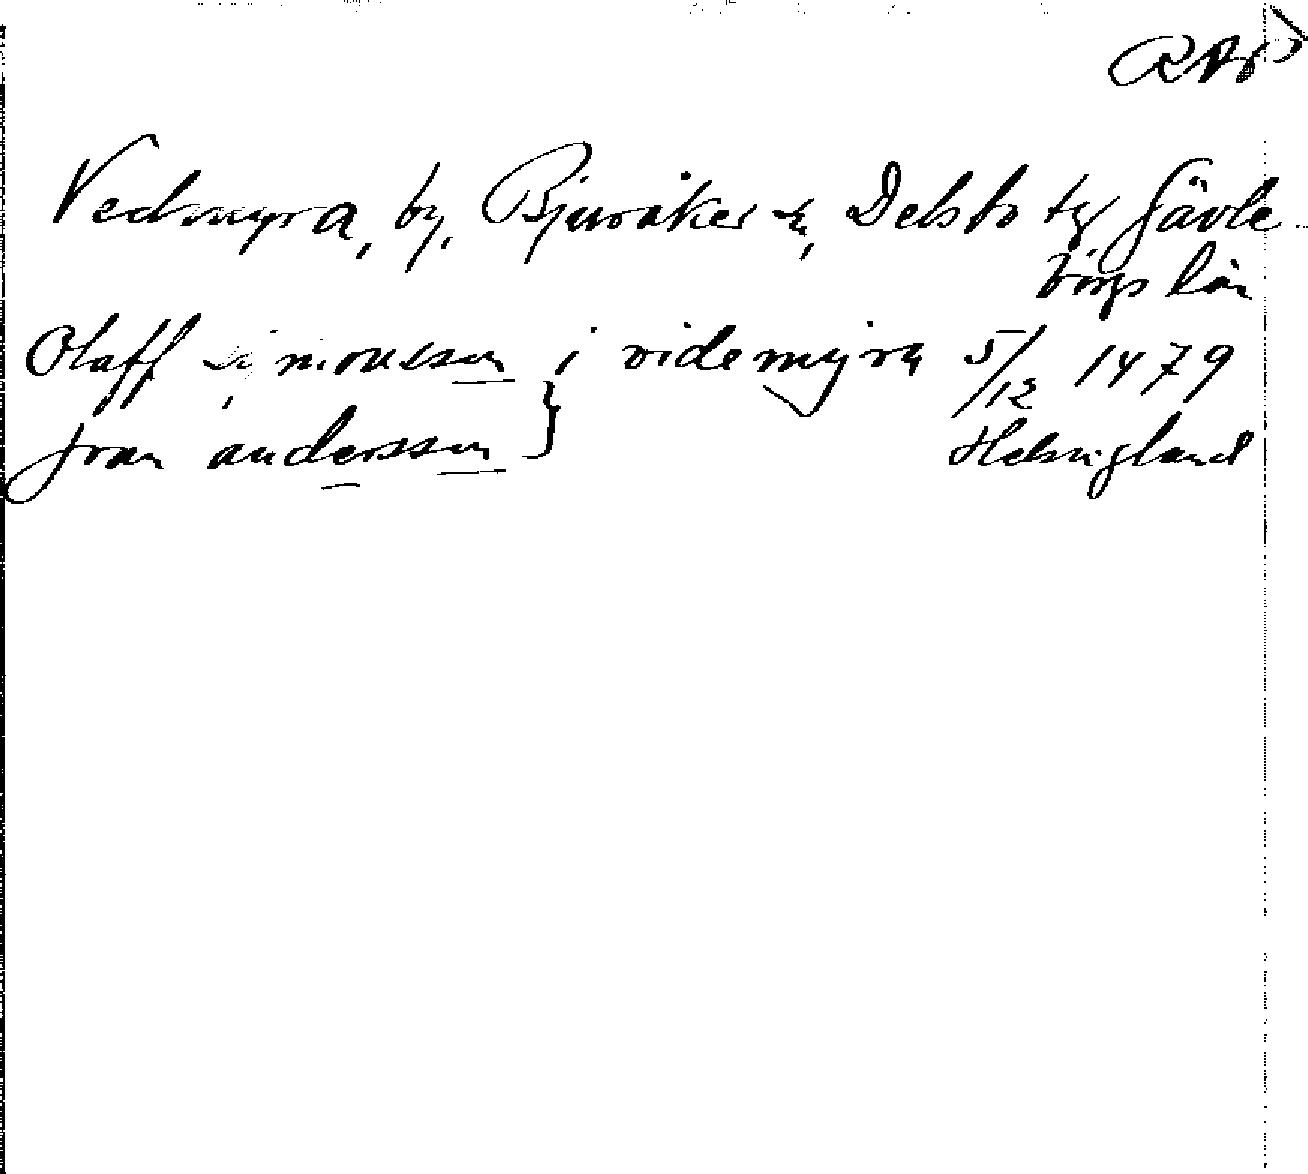 RAp
Vedmyra, by, Bjuråker sn, Delsbo tg Gävle-
borgs län
Olaff simonsson } i videmyra 5/12 1479
jwan andersson Helsingland